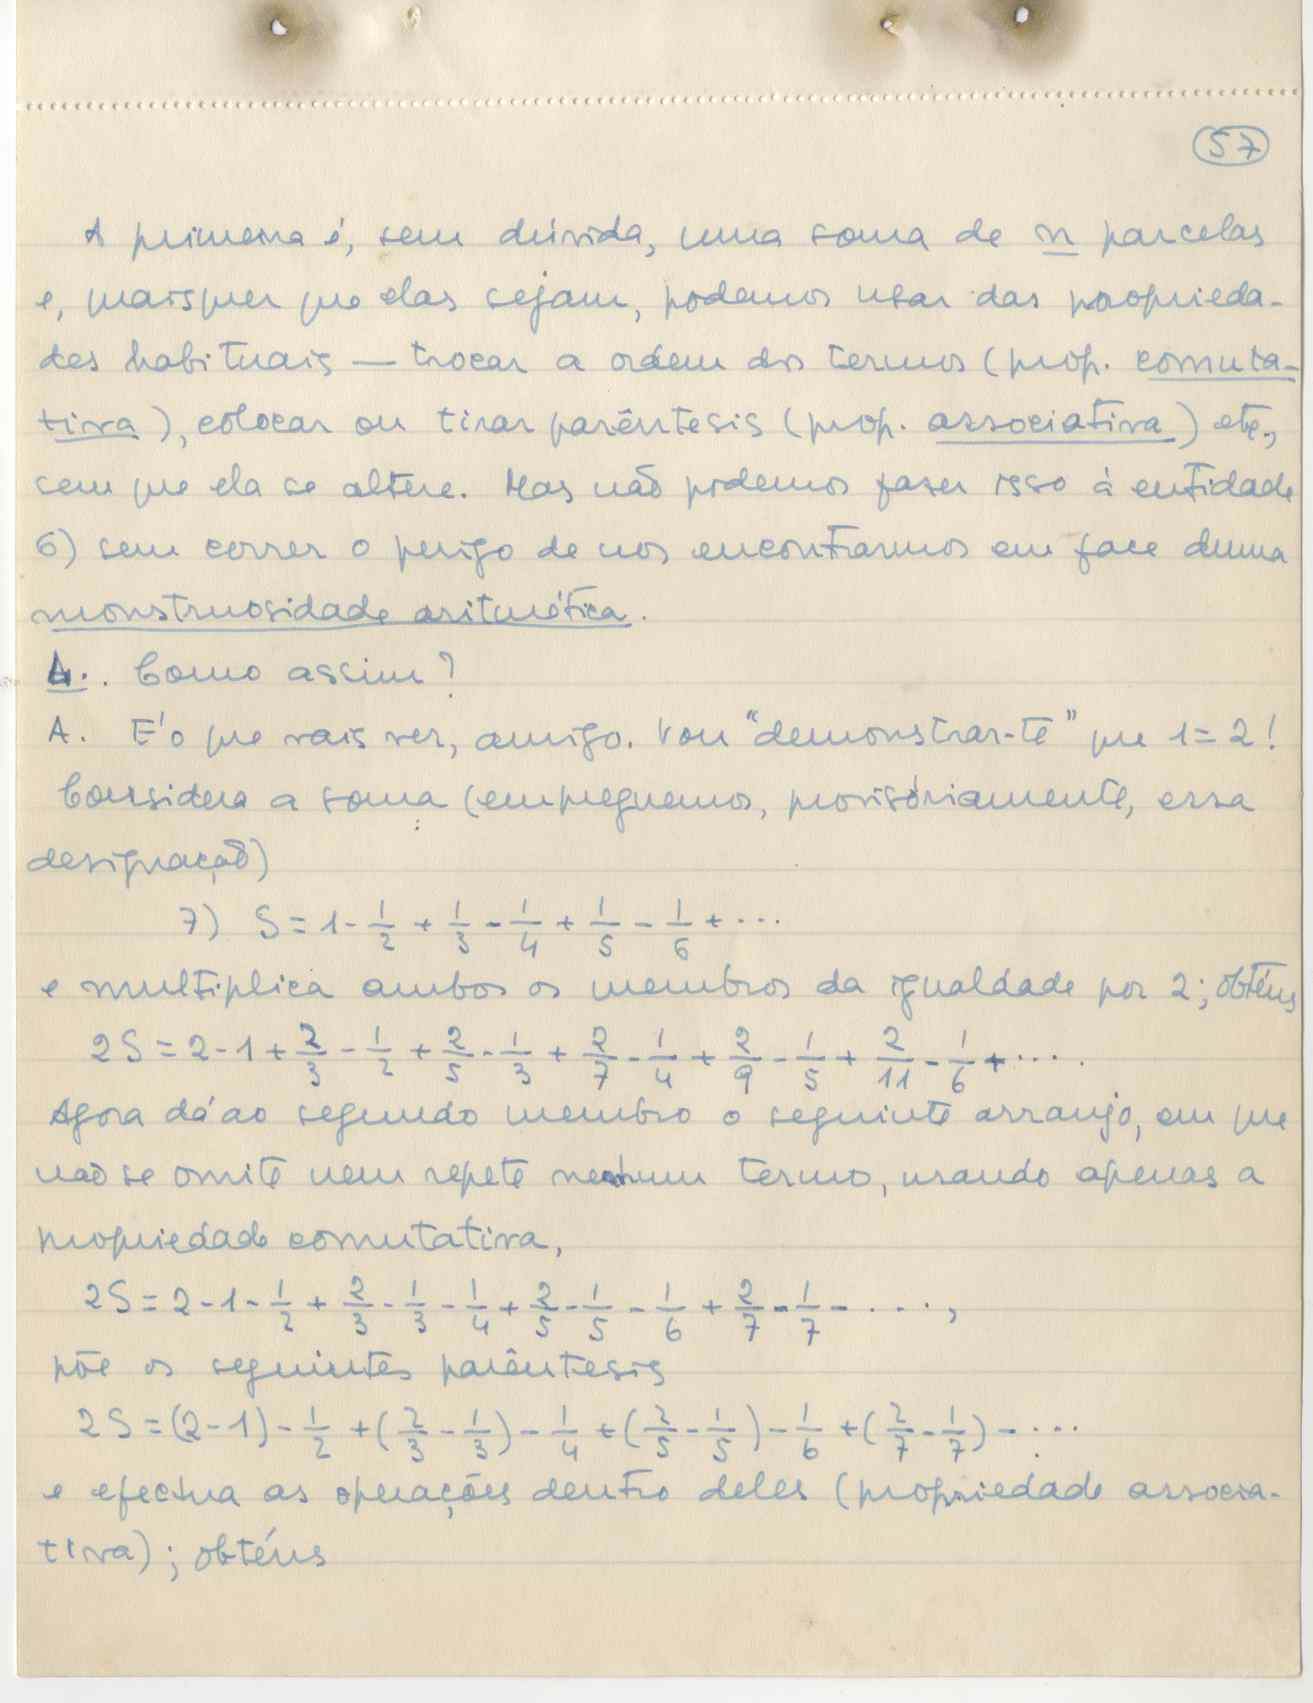 57
A primeira é, sem dúvida, uma soma de n parcelas
e, quaisquer que elas sejam, podemos usar das proprieda-
des habituais — trocar a ordem dos termos (prop. comuta-
tiva), colocar ou tirar parêntesis (prop. associativa) etc.,
sem que ela se altere. Mas não podemos fazer isso à entidade
6) sem correr o perigo de nos encontrarmos em face duma
monstruosidade aritmética.
L.. Como assim?
A. E' o que vais ver, amigo. Vou "demonstrar-te" que 1=2!
Considera a soma (empreguemos, provisóriamente, essa
designação)
7) S = 1 - 1/2 + 1/3 - 1/4 + 1/5 - 1/6 + ...
e multiplica ambos os membros da igualdade por 2; obténs
2S = 2 - 1 + 2/3 - 1/2 + 2/5 - 1/3 + 2/7 - 1/4 + 2/9 - 1/5 + 2/11 - 1/6 + ....
Agora dá ao segundo membro o seguinte arranjo, em que
não se omite nem repete nenhum termo, usando apenas a
propriedade comutativa,
2S = 2 - 1 - 1/2 + 2/3 - 1/3 - 1/4 + 2/5 - 1/5 - 1/6 + 2/7 - 1/7 - ....,
põe os seguintes parêntesis
2S = (2-1) - 1/2 + (2/3 - 1/3) - 1/4 + (2/5 - 1/5) - 1/6 + (2/7 - 1/7) - ...
e efectua as operações dentro deles (propriedade associa-
tiva); obténs